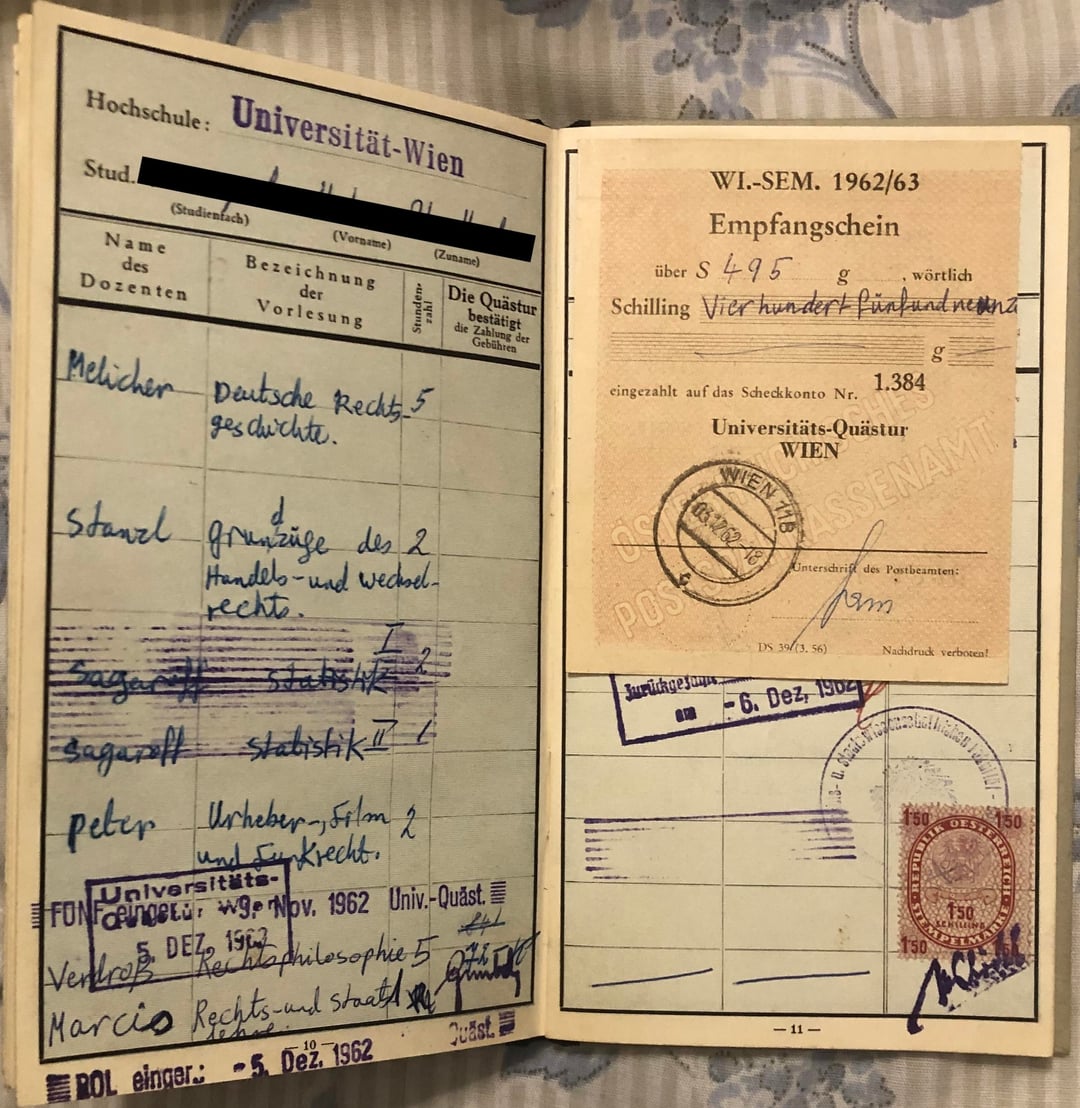 Hochschule: Universität-Wien
Stud.
(Studienfach) (Vorname) (Zuname)
Name des Dozenten
Bezeichnung der Vorlesung
Stunden-zahl
Die Quästur bestätigt die Zahlung der Gebühren
Melicher Deutsche Rechts- 5
geschichte.
Stanzl Grundzüge des 2
Handels- und Wechsel-
rechts.
I
Sagaroff Statistik 2
Sagaroff Statistik II 1
Peter Urheber-, Film 2
und Funkrecht.
Universitäts-
FÜNF einger.: 9. Nov. 1962 Univ.-Quäst.
5. DEZ. 1962
Verdroß Rechtsphilosophie 5
Marcic Rechts- und Staats
lehre.
— 10 —
ROL einger.: - 5. Dez. 1962 Quäst.
WI.-SEM. 1962/63
Empfangschein
über S 495 g , wörtlich
Schilling Vierhundertfünfundneunz
g
eingezahlt auf das Scheckkonto Nr. 1.384
Universitäts-Quästur
WIEN
ÖSTERREICHISCHES
POSTSPARKASSENAMT
WIEN 118
Unterschrift des Postbeamten:
DS 39 (3. 56) Nachdruck verboten!
am - 6. Dez. 1962
- u. staatswissenschaftlichen Fakultät -
1.50 1.50
REPUBLIK OESTERREICH
1.50
SCHILLING
STEMPELMARKE
1.50
— 11 —